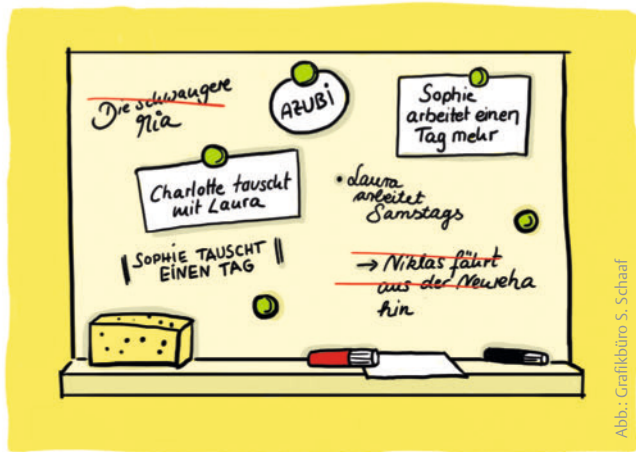 Die schwangere
Nia
AZUBI
Sophie
arbeitet einen
Tag mehr
Charlotte tauscht
mit Laura
• Laura
arbeitet
Samstags
SOPHIE TAUSCHT
EINEN TAG
→ Niklas fährt
aus der Neureha
hin
Abb.: Grafikbüro S. Schaaf